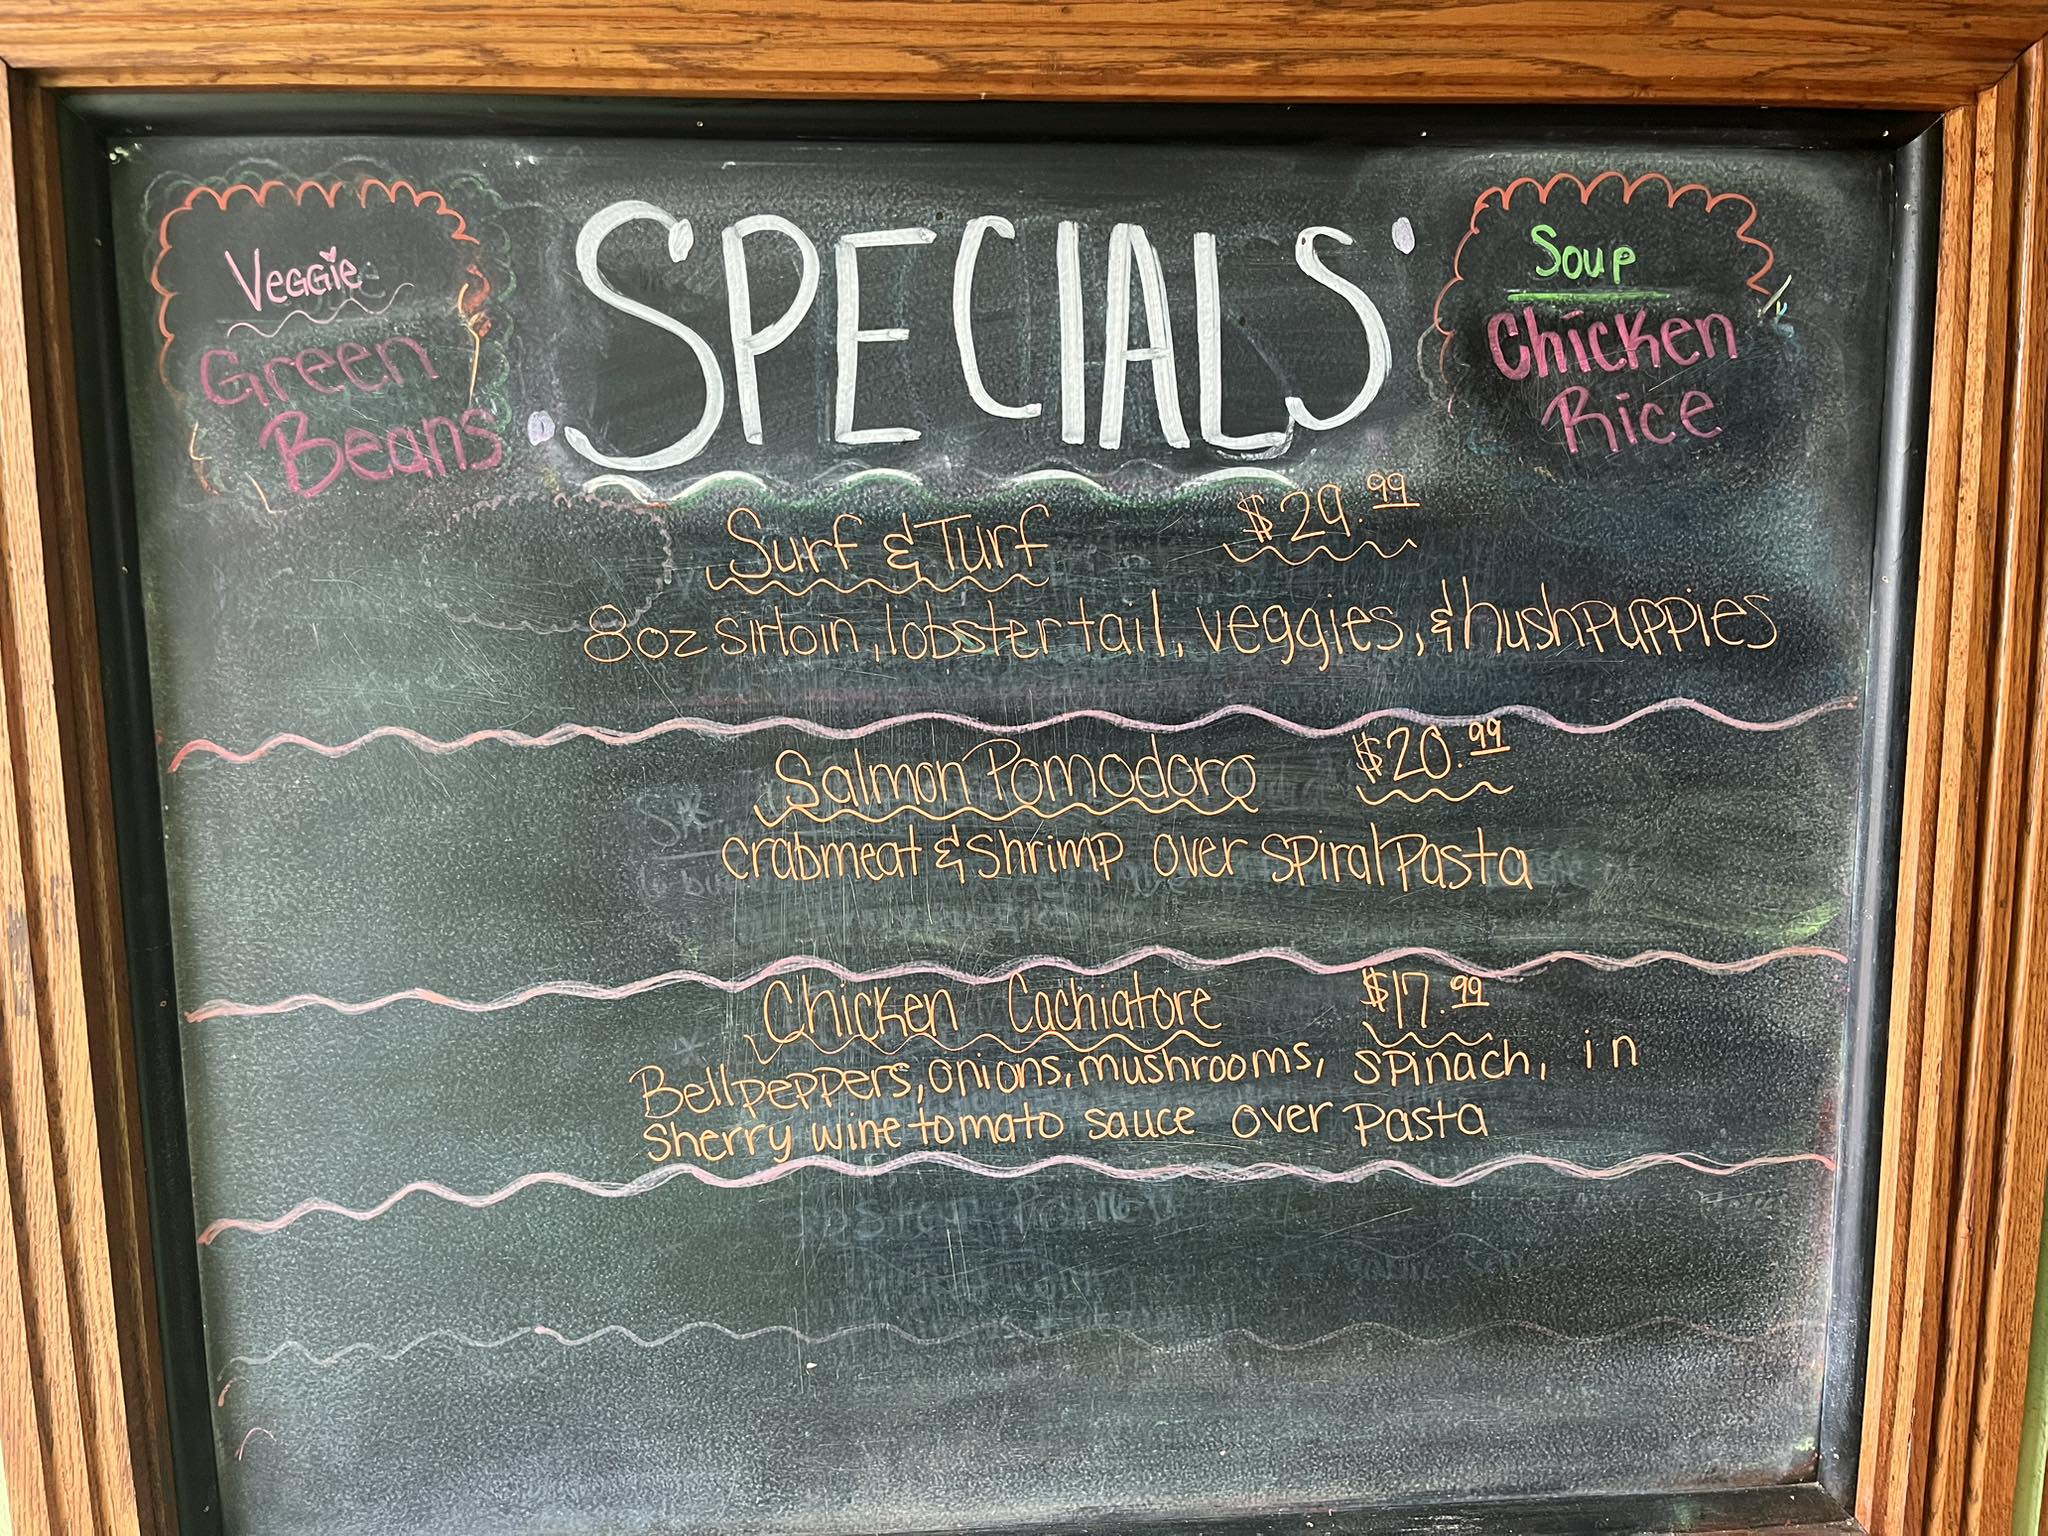 Veggie
Green
Beans
SPECIALS
Soup
Chicken
Rice
Surf & Turf $29.99
8oz sirloin, lobster tail, veggies, & hushpuppies
Salmon Pomodoro $20.99
crabmeat & shrimp over spiral Pasta
Chicken Cachiatore $17.99
Bell peppers, onions, mushrooms, spinach, in
sherry wine tomato sauce over Pasta